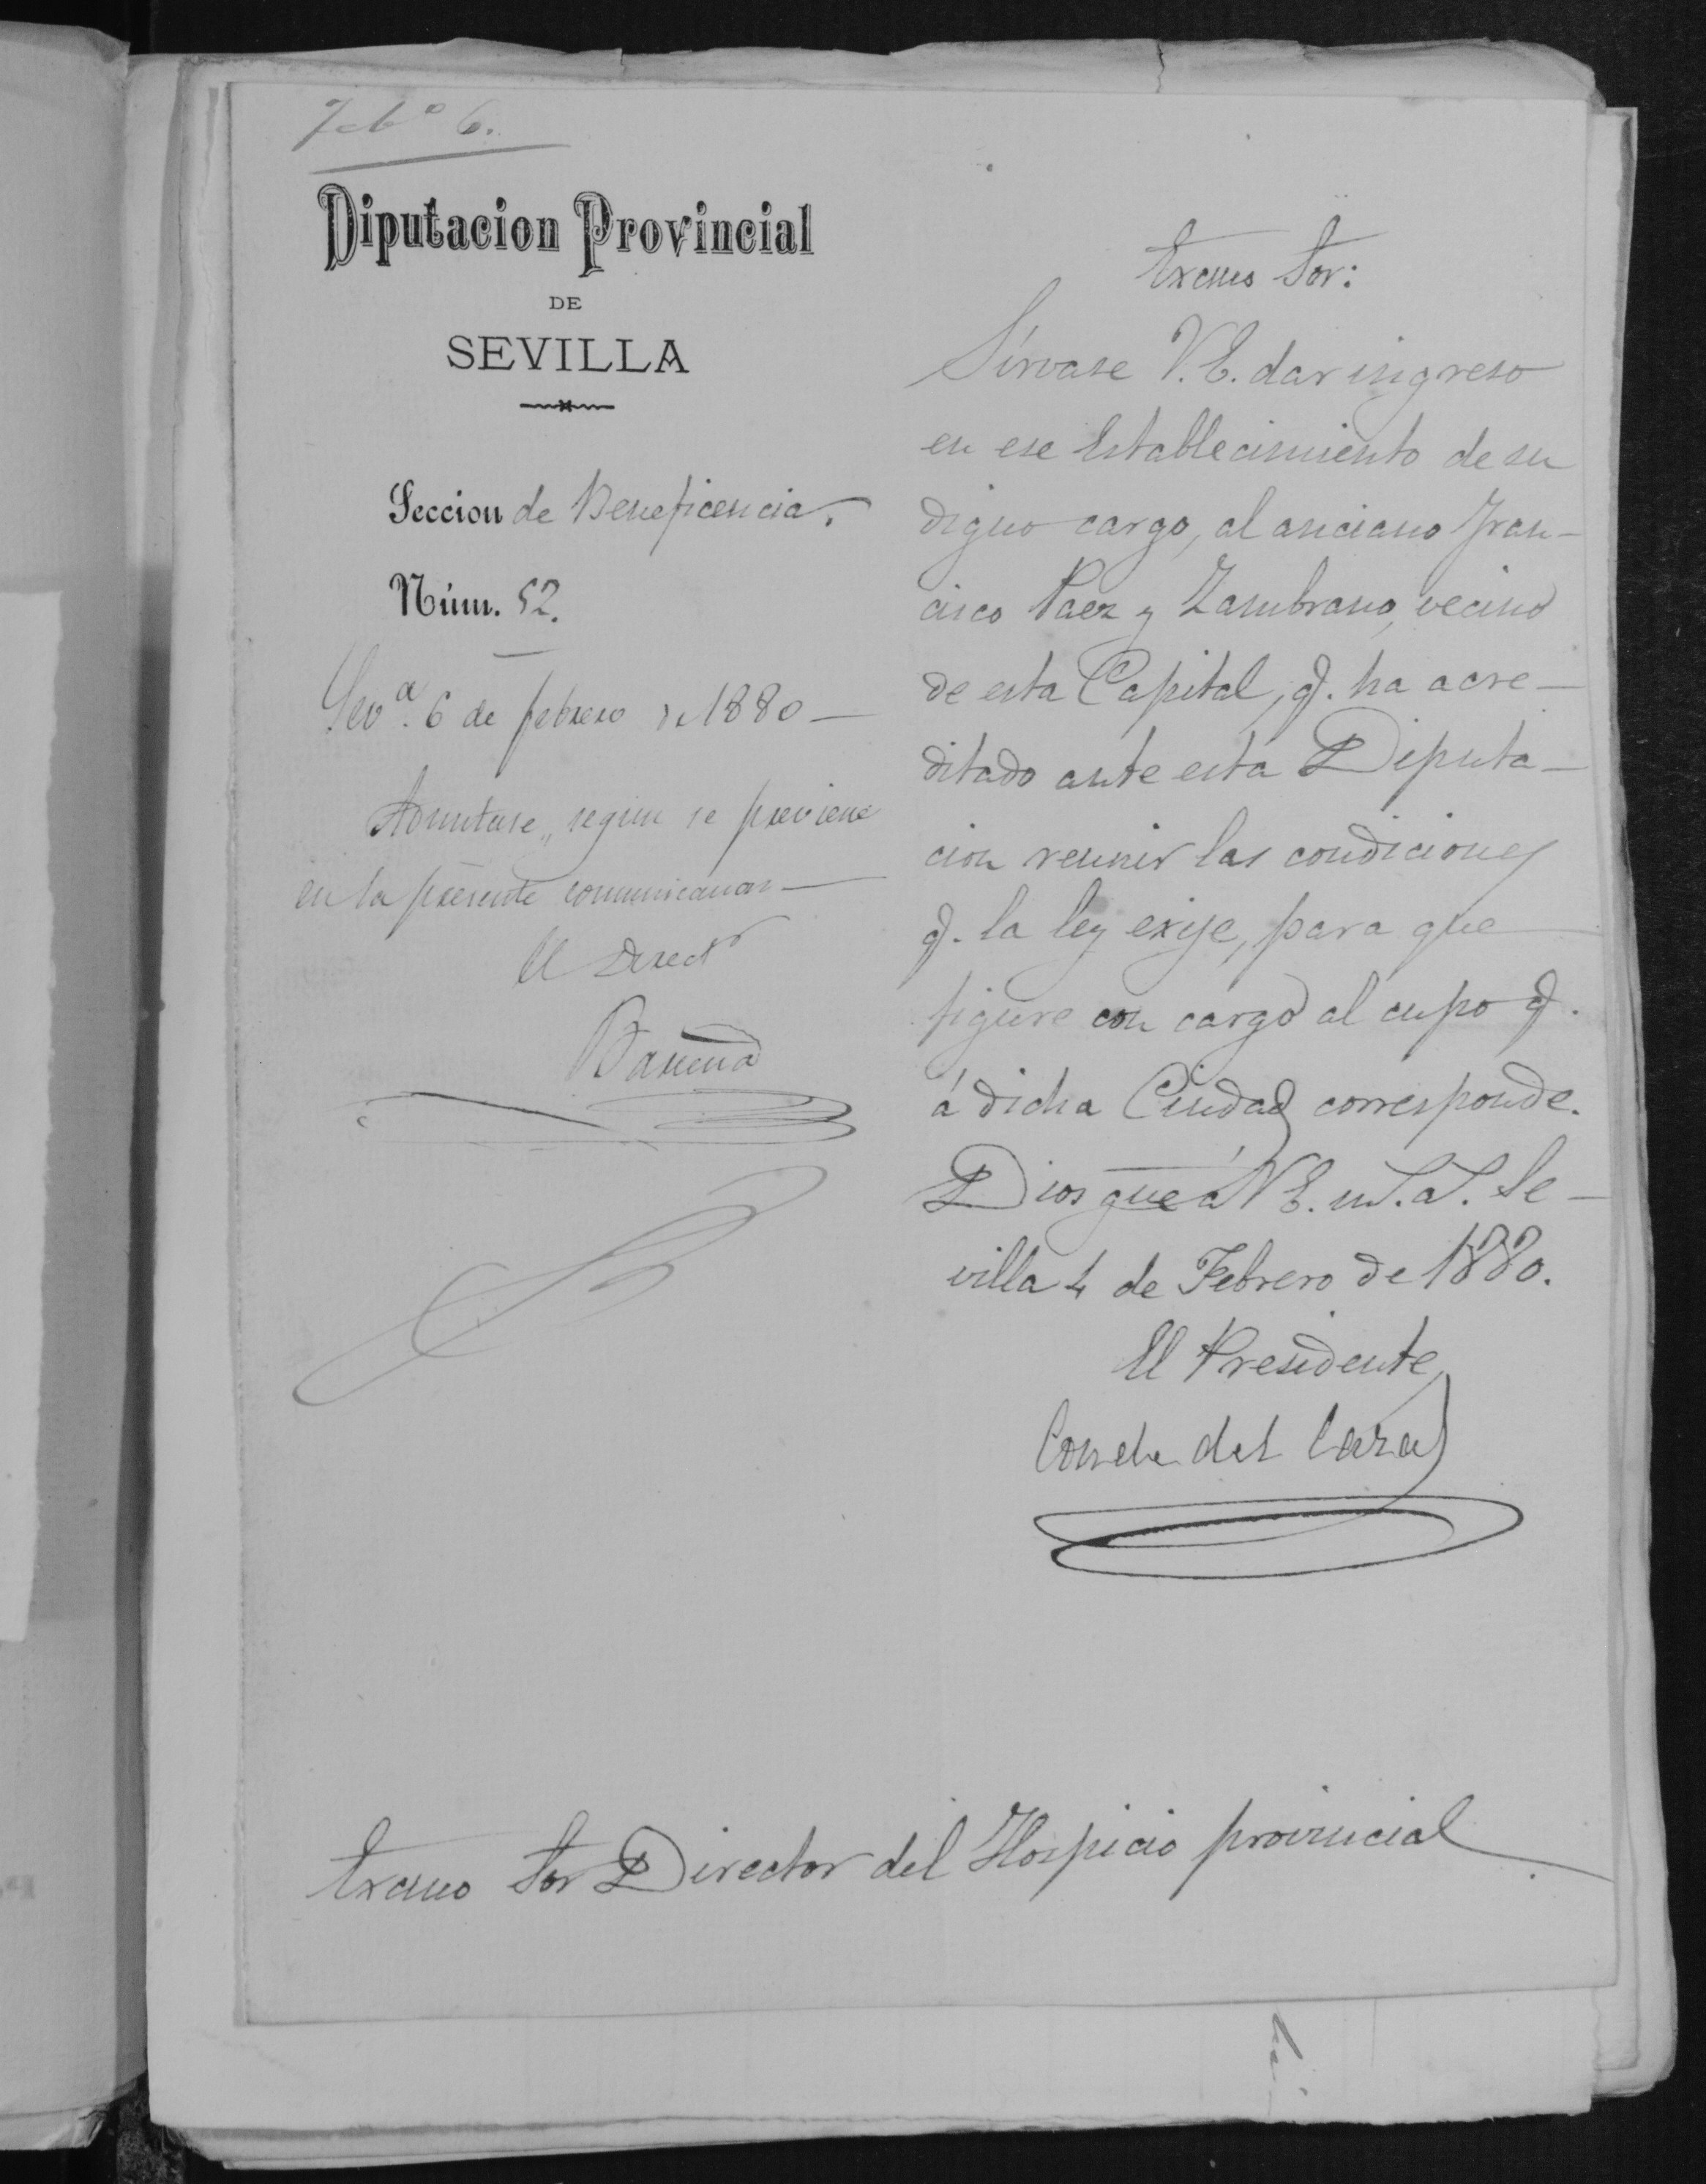 Feb.º 6.
Diputacion Provincial
DE
SEVILLA
Seccion de Beneficencia.
Núm. 52.
Sevª. 6 de febrero de 1880
Admitase, segun se previene
en la presente comunicacion
El Directr
Excmo Sor:
Sírvase V.E. dar ingreso
en ese Establecimiento de su
digno cargo, al anciano Fran-
cisco Paez y Zambrano, vecino
de esta Capital, q. ha acre-
ditado ante esta Diputa-
cion reunir las condiciones
q. la ley exije, para que
figure con cargo al cupo q.
á dicha Ciudad corresponde.
Dios gue á V E. m.s a.s Se-
villa 4 de Febrero de 1880.
El Presidente
Conde del Cazal
Excmo Sor Director del Hospicio provincial